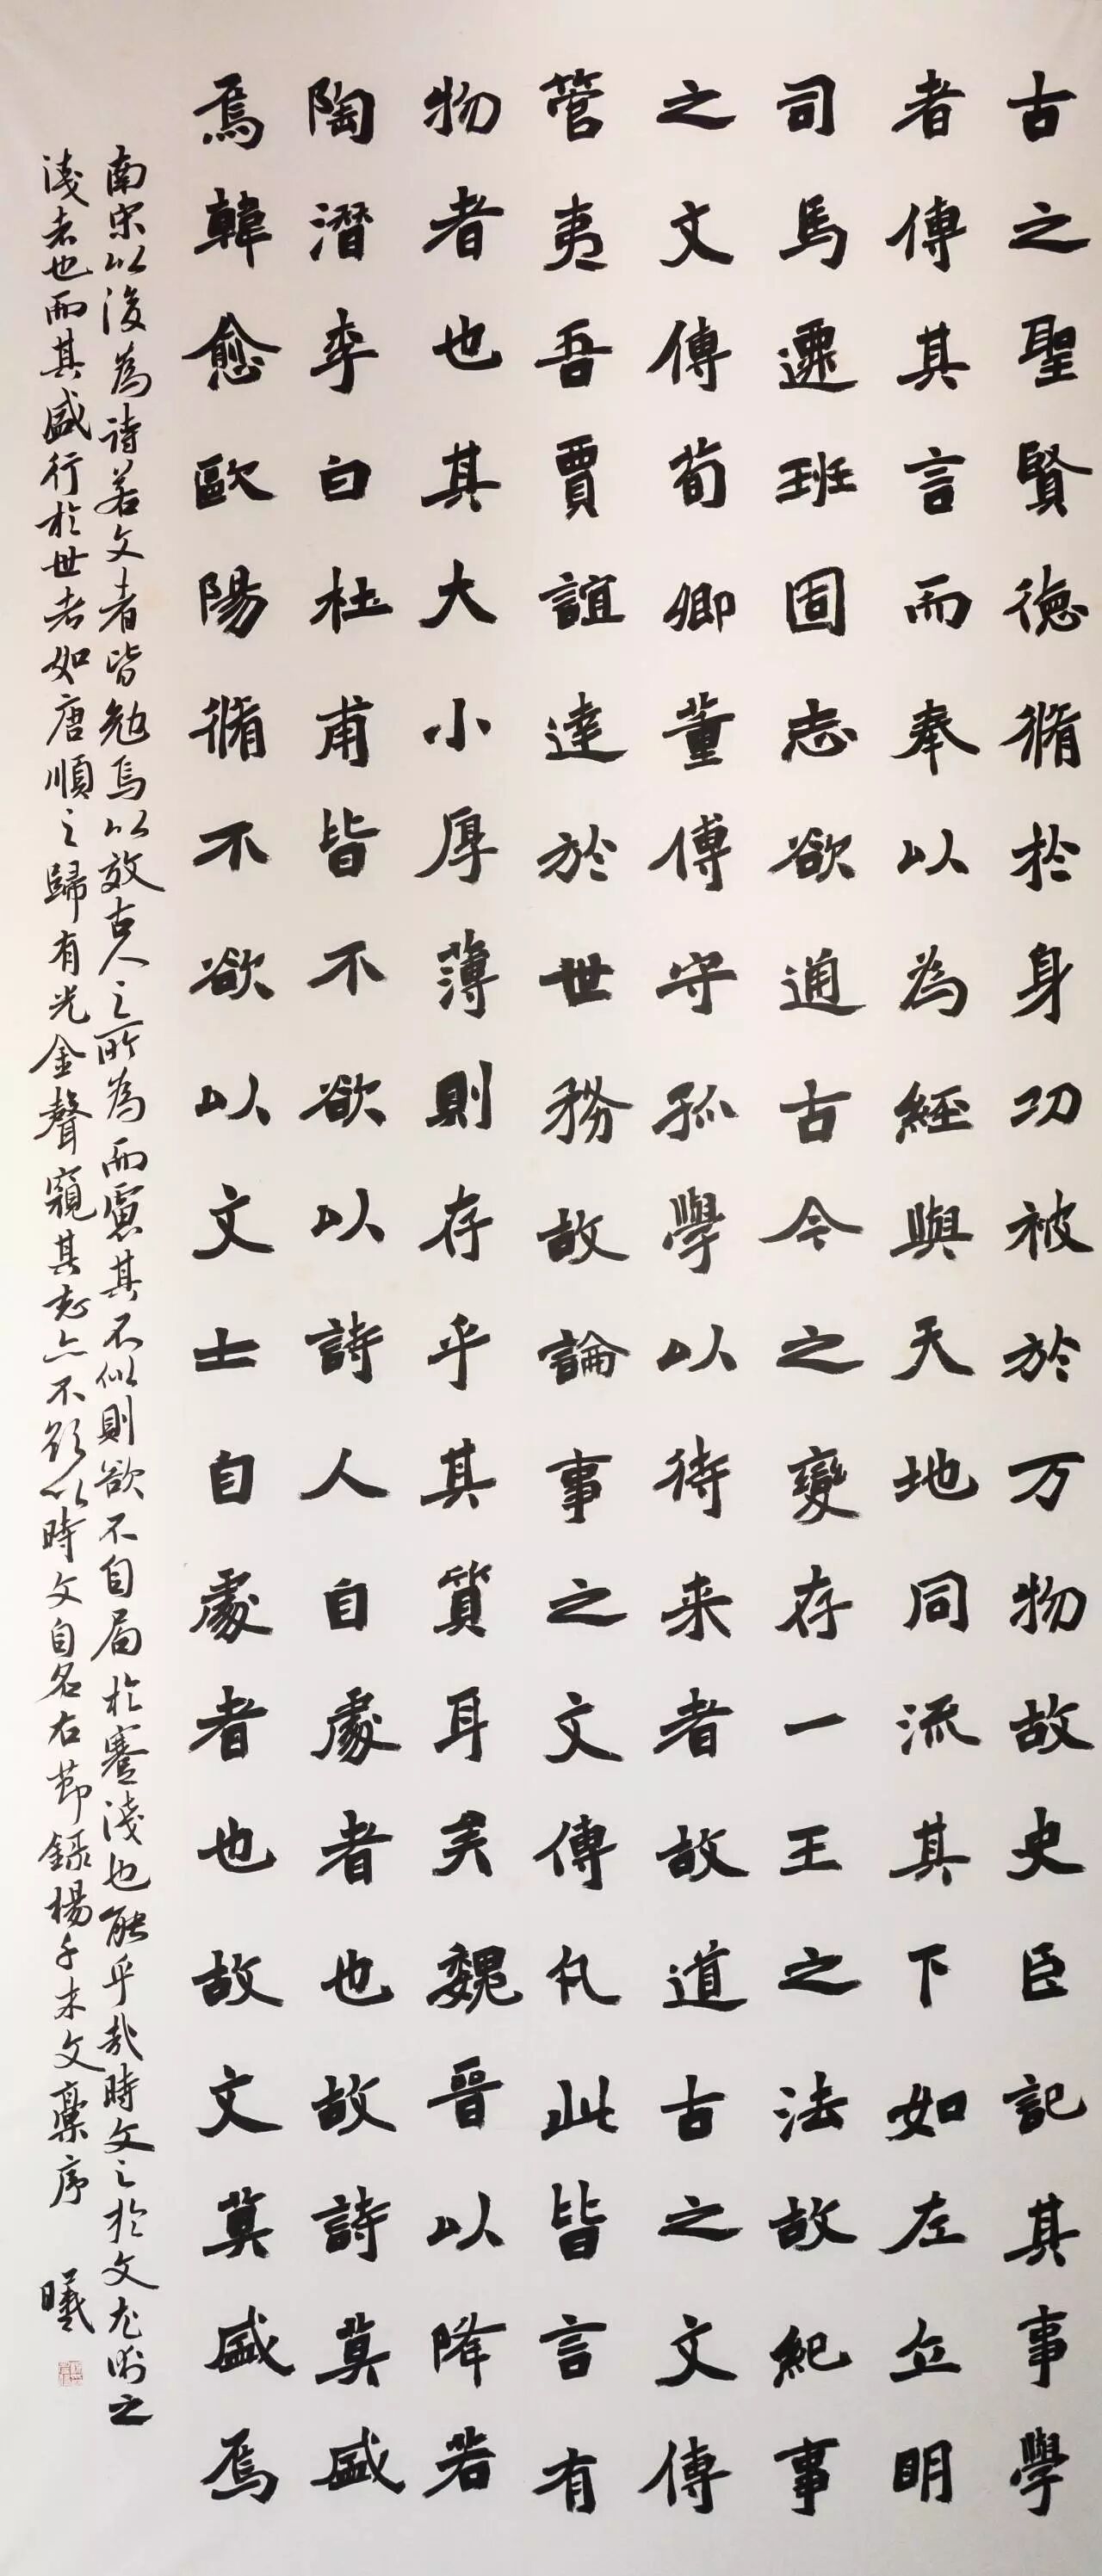 古之聖賢德脩於身功被於万物故史臣記其事學
者傳其言而奉以為經與天地同流其下如左丘明
司馬遷班固志欲通古今之變存一王之法故紀事
之文傳荀卿董傅守孤學以待来者故道古之文傳
管夷吾賈誼達於世務故論事之文傳凡此皆言有
物者也其大小厚薄則存乎其質耳矣魏晉以降若
陶潛李白杜甫皆不欲以詩人自處者也故詩莫盛
焉韓愈歐陽脩不欲以文士自處者也故文莫盛焉
南宋以後為詩若文者皆勉焉以效古人之所為而慮其不似則欲不自局於蹇淺也能乎哉時文之於文尤術之
淺者也而其盛行於世者如唐順之歸有光金聲窺其志亦不欲以時文自名右節錄楊千木文稾序 曦